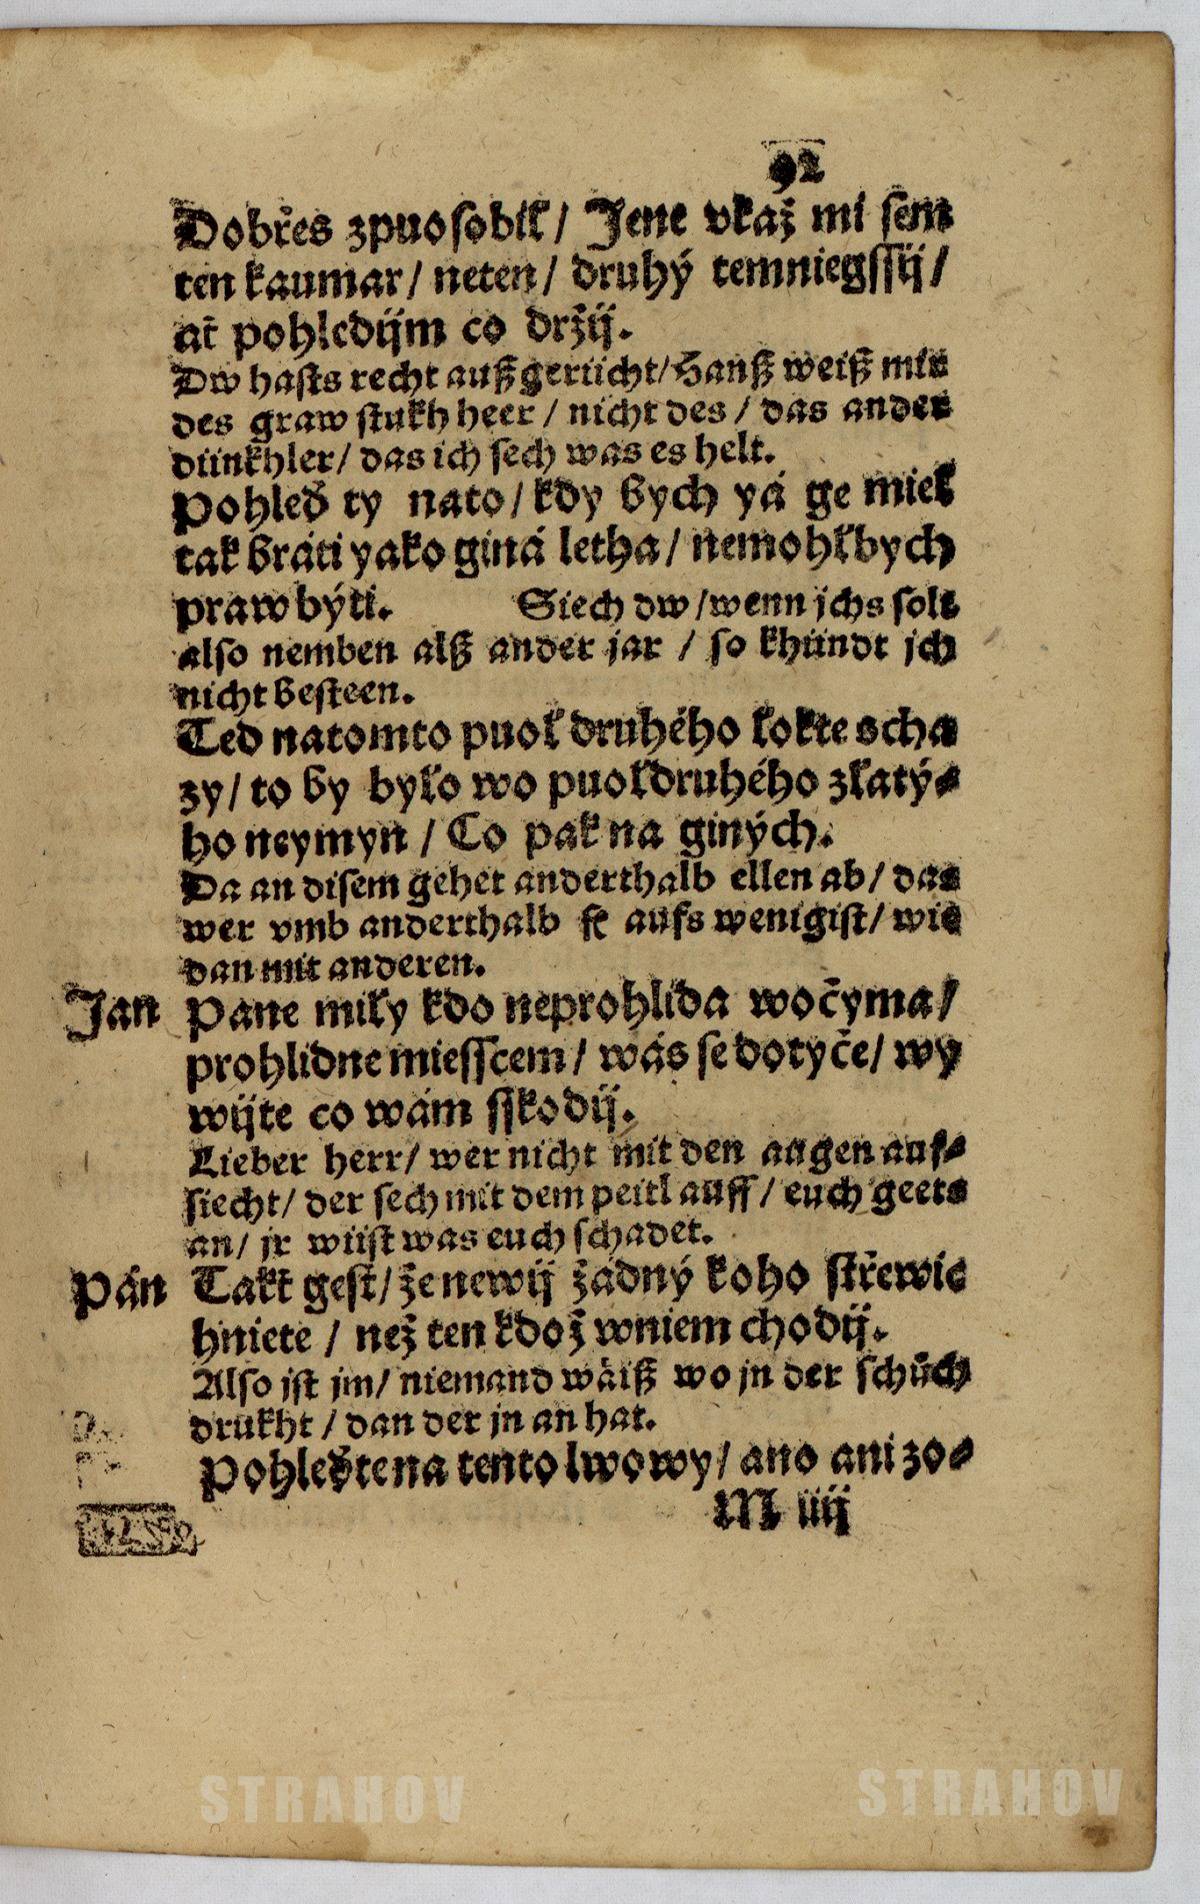 92
Dobřes zpuosobil / Jene vkaž mi sem
ten kaumar / neten / druhý temniegssij /
ať pohledijm co držij.
Dw hasts recht außgeriicht / Hanß weiß mir
des graw stukh heer / nicht des / das ander
diinkhler / das ich sech was es helt.
Pohleď ty nato / kdy bych yá ge miel
tak bráti yako giná letha / nemohlbych
praw býti. Siech dw / wenn jchs solt
also nemben alß ander jar / so khündt jch
nicht besteen.
Ted natomto puol druhého lokte scha
zy / to by bylo wo puoldruhého zlatý-
ho neymyn / Co pak na giných.
Da an disem gehet anderthalb ellen ab / das
wer vmb anderthalb fe aufs wenigist / wie
dan mit anderen.
Jan Pane mily kdo neprohlida wočyma /
prohlidne miesscem / wás se dotyče / wy
wijte co wám sskodij.
Lieber herr / wer nicht mit den augen auf-
siecht / der sech mit dem peitl auff / euch geets
an / jr wiist was euch schadet.
Pán Takť gest / že newij žádný koho střewic
hniete / než ten kdož wniem chodij.
Also jst jm / niemand wäiß wo jn der schůch
drukht / dan der jn an hat.
Pohleďte na tento lwowy / ano ani zo-
M iiij
STRAHOV STRAHOV